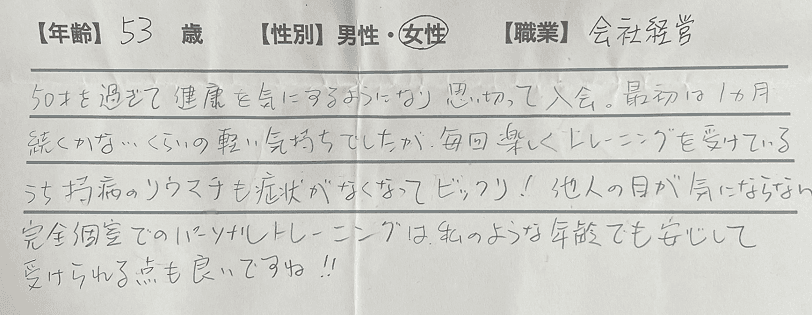 【年齢】 53 歳 【性別】 男性・女性 【職業】 会社経営
50才を過ぎて健康を気にするようになり思い切って入会。最初は1カ月
続くかな…くらいの軽い気持ちでしたが、毎回楽しくトレーニングを受けている
うち持病のリウマチも症状がなくなってビックリ!他人の目が気にならない
完全個室でのパーソナルトレーニングは、私のような年齢でも安心して
受けられる点も良いですね!!